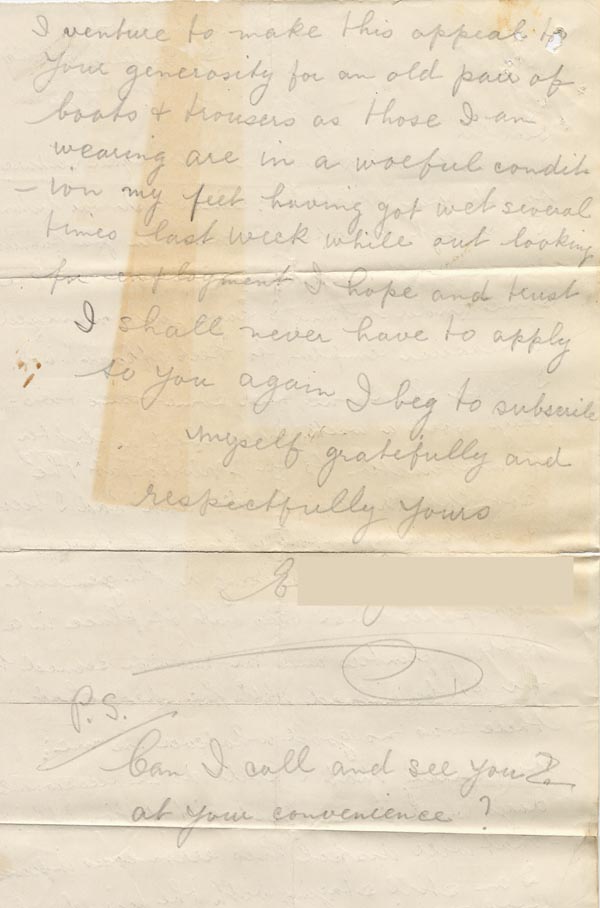 I venture to make this appeal to
your generosity for an old pair of
boots & trousers as those I am
wearing are in a woeful condit
- ion my feet having got wet several
times last week while out looking
for employment I hope and trust
I shall never have to apply
to you again I beg to subscribe
myself gratefully and
respectfully yours
E
P.S.
Can I call and see you?
at your convenience?